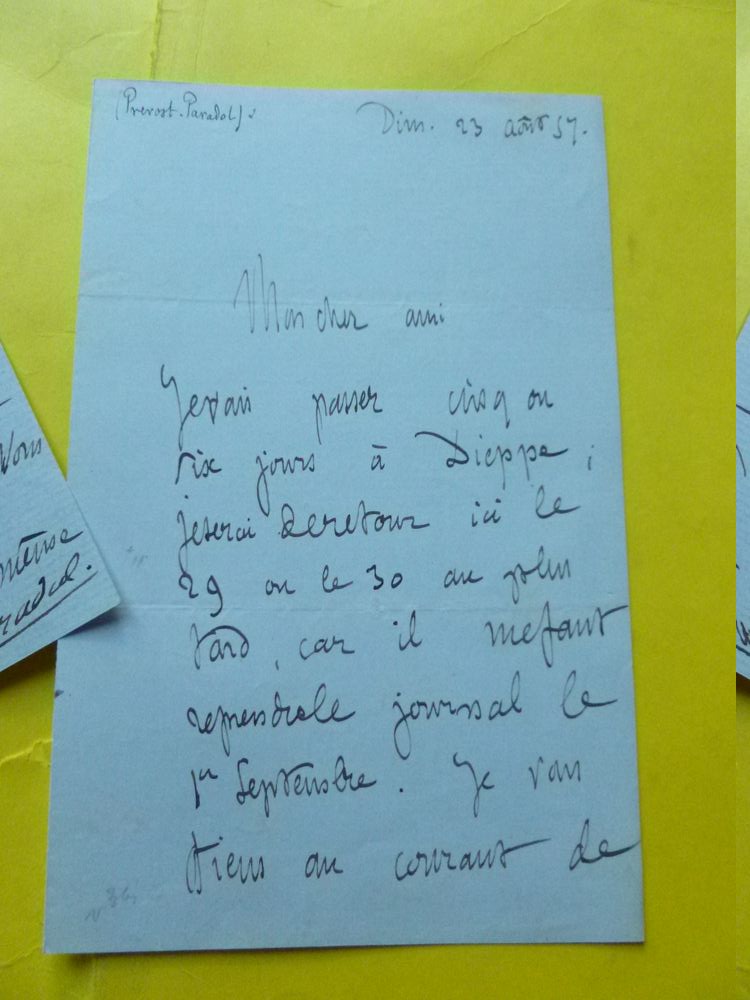 (Prevost-Paradol)
Dim. 23 août 57.
Mon cher ami
Je vais passer cinq ou
six jours à Dieppe ;
je serai de retour ici le
29 ou le 30 au plus
tard, car il me faut
reprendre le journal le
1er Septembre. Je vous
tiens au courant de
Vous
radol.